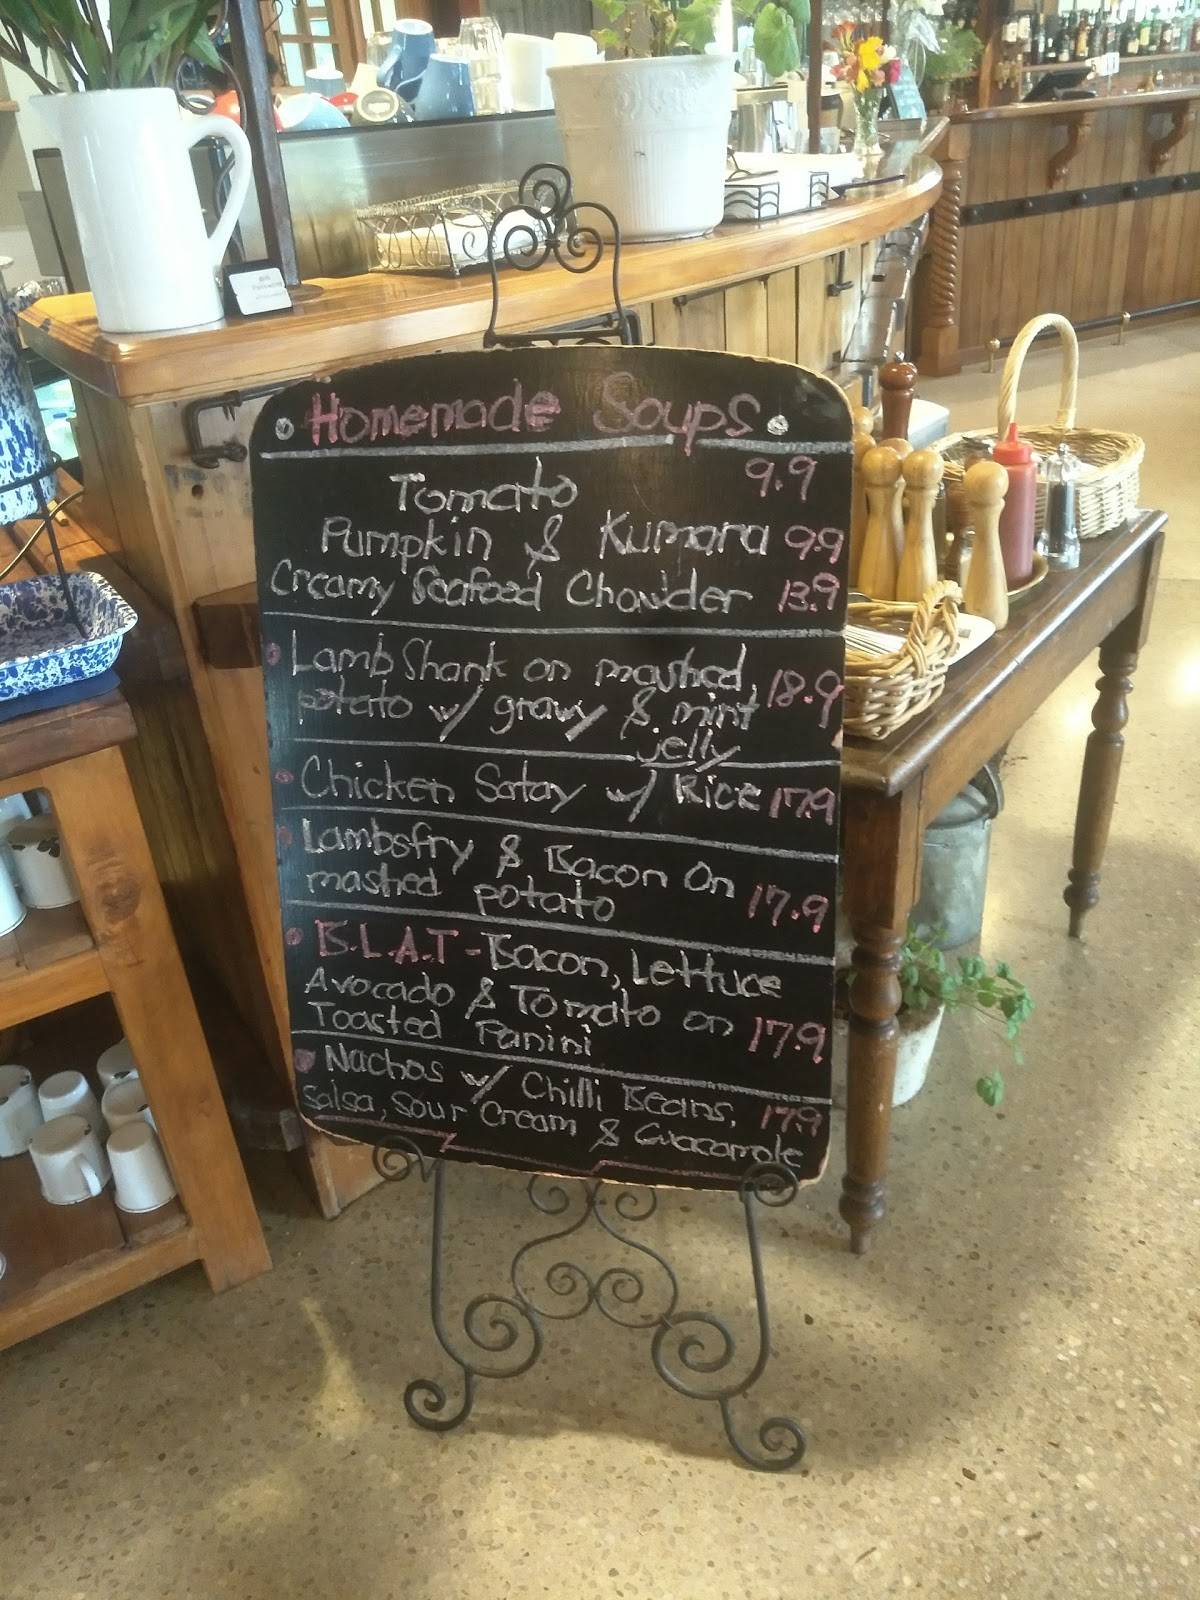 Homemade Soups
Tomato 9.9
Pumpkin & Kumara 9.9
Creamy Seafood Chowder 13.9
Lamb Shank on mashed
potato w/ gravy & mint 18.9
jelly
Chicken Satay w/ Rice 17.9
Lambsfry & Bacon On
mashed potato 17.9
B.L.A.T - Bacon, Lettuce
Avocado & Tomato on
Toasted Panini 17.9
Nachos w/ Chilli Beans, 17.9
Salsa, Sour Cream & Guacamole